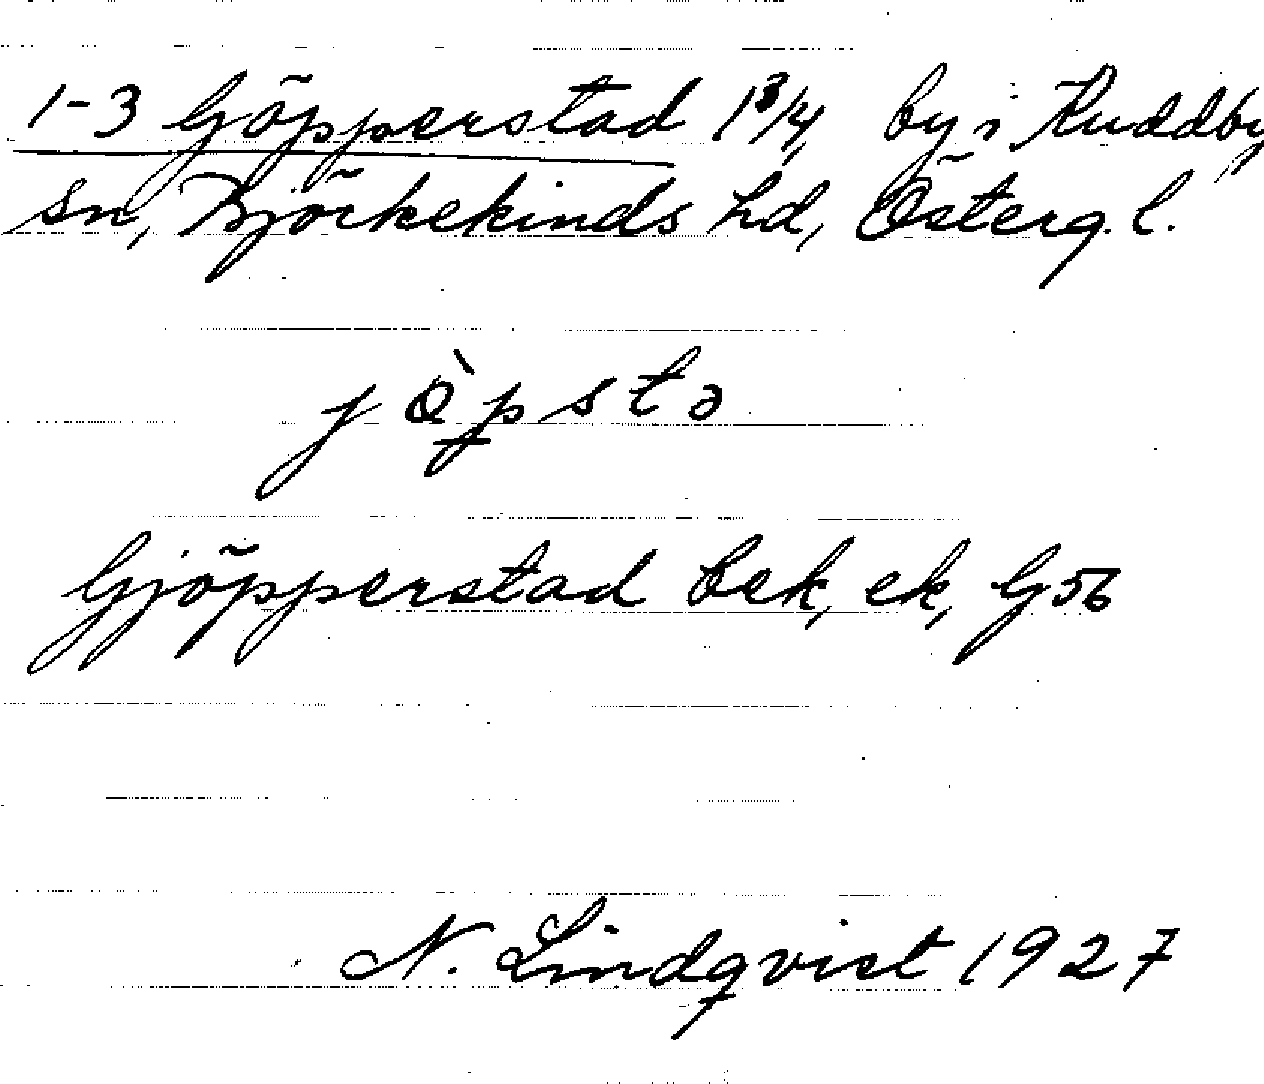 1-3 Göpperstad 1 3/4, by i Ruddby
sn, Björkekinds hd, Österg. l.
jö̀pstə
Gjöpperstad bek, ek, G56
N. Lindqvist 1927